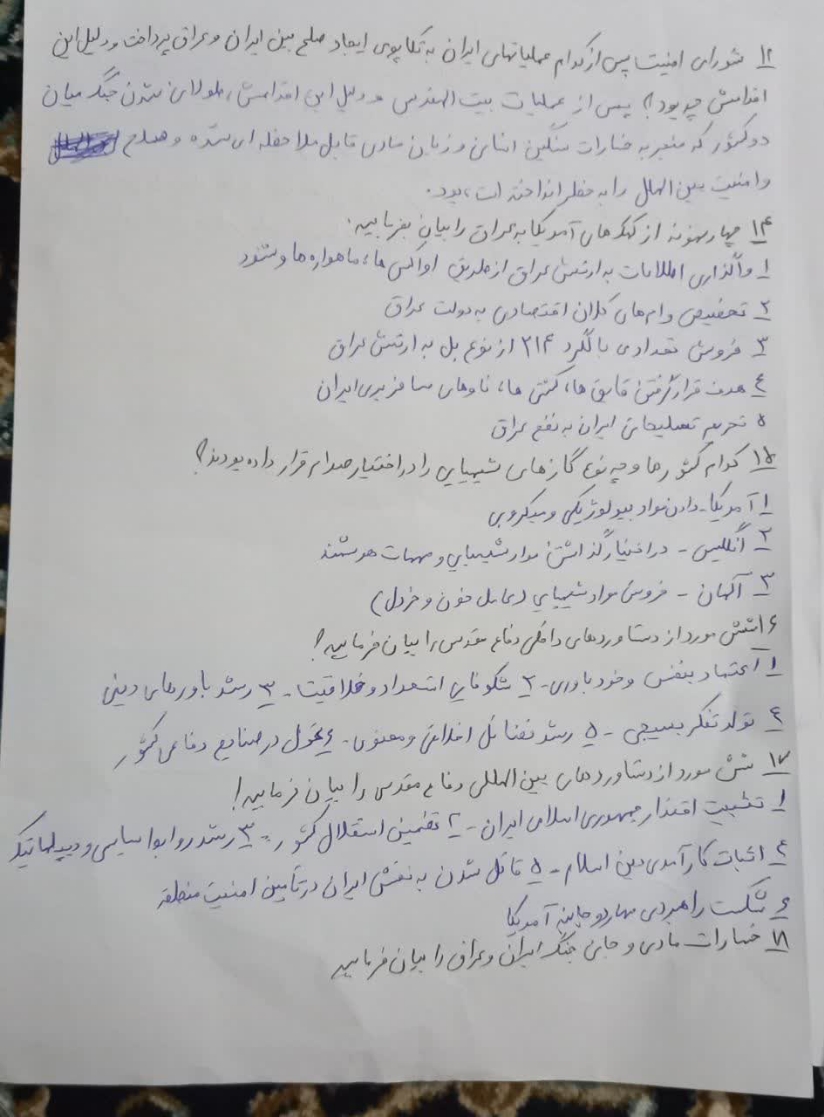 ۱۲ شورای امنیت پس از کدام عملیاتهای ایران به تکاپوی ایجاد صلح بین ایران و عراق پرداخت و دلیل این
اقدامش چه بود؟ پس از عملیات بیت المقدس و دلیل این اقدامش، طولانی شدن جنگ میان
دو کشور که منجر به خسارات سنگین انسانی و زیان مادی قابل ملاحظه ای شده و صلح
و امنیت بین الملل را به خطر انداخته است، بود.
۱۴ چهار نمونه از کمک های آمریکا به عراق را بیان بفرمایید.
۱ واگذاری اطلاعات به ارتش عراق از طریق آواکس ها، ماهواره ها و شنود
۲ تخصیص وام های کلان اقتصادی به دولت عراق
۳ فروش تعدادی بالگرد ۲۱۴ از نوع بل به ارتش عراق
۴ هدف قرار گرفتن قایق ها، کشتی ها، ناوهای مسافربری ایران
۵ تحریم تسلیحاتی ایران به نفع عراق
۱۵ کدام کشورها و چه نوع گازهای شیمیایی را در اختیار صدام قرار داده بودند؟
۱ آمریکا - دادن مواد بیولوژیکی و میکروبی
۲ انگلیس - در اختیار گذاشتن مواد شیمیایی و مهمات هوشمند
۳ آلمان - فروش مواد شیمیایی (عامل خون و خردل)
۱۶ شش مورد از دستاوردهای داخلی دفاع مقدس را بیان فرمایید؟
۱ اعتماد بنفس و خودباوری - ۲ شکوفایی استعداد و خلاقیت - ۳ رشد باورهای دینی
۴ تولد تفکر بسیجی - ۵ رشد فضائل اخلاقی و معنوی - ۶ تحول در صنایع دفاعی کشور
۱۷ شش مورد از دستاوردهای بین المللی دفاع مقدس را بیان فرمایید!
۱ تثبیت اقتدار جمهوری اسلامی ایران - ۲ تضمین استقلال کشور - ۳ رشد روابط سیاسی و دیپلماتیک
۴ اثبات کارآمدی دین اسلام - ۵ قائل شدن به نقش ایران در تأمین امنیت منطقه
۶ شکست راهبردی مهار دوجانبه آمریکا
۱۸ خسارات مادی و جانی جنگ ایران و عراق را بیان فرمایید